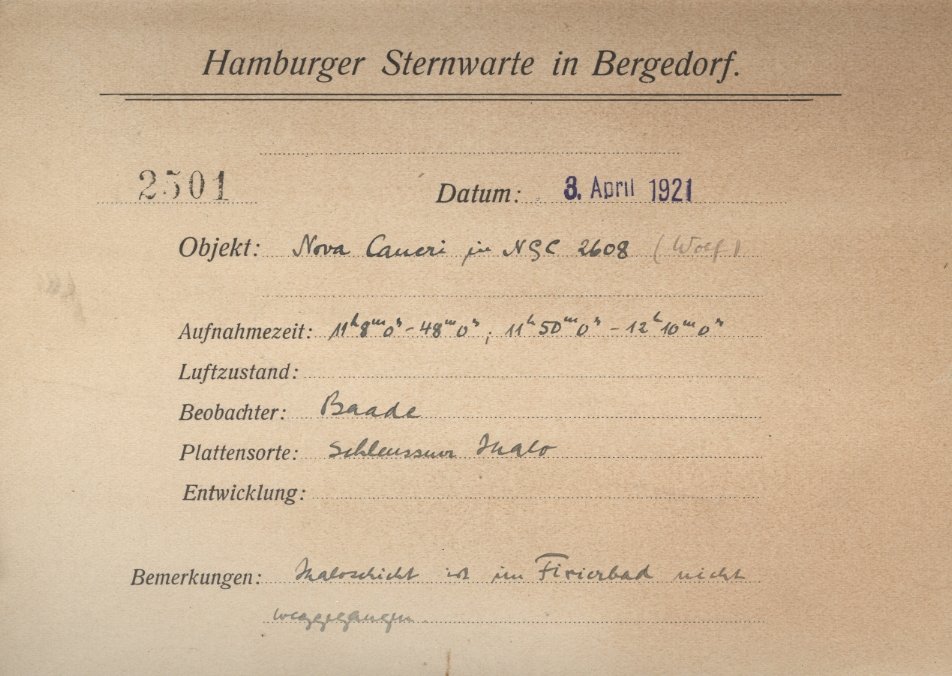 Hamburger Sternwarte in Bergedorf.
2501 Datum: 3. April 1921
Objekt: Nova Cancri in NGC 2608 (Wolf)
Aufnahmezeit: 11ʰ8ᵐ0ˢ - 48ᵐ0ˢ; 11ʰ50ᵐ0ˢ - 12ʰ10ᵐ0ˢ
Luftzustand:
Beobachter: Baade
Plattensorte: Schleussner Inalo
Entwicklung:
Bemerkungen: Inaloschicht ist im Fixierbad nicht
weggegangen.